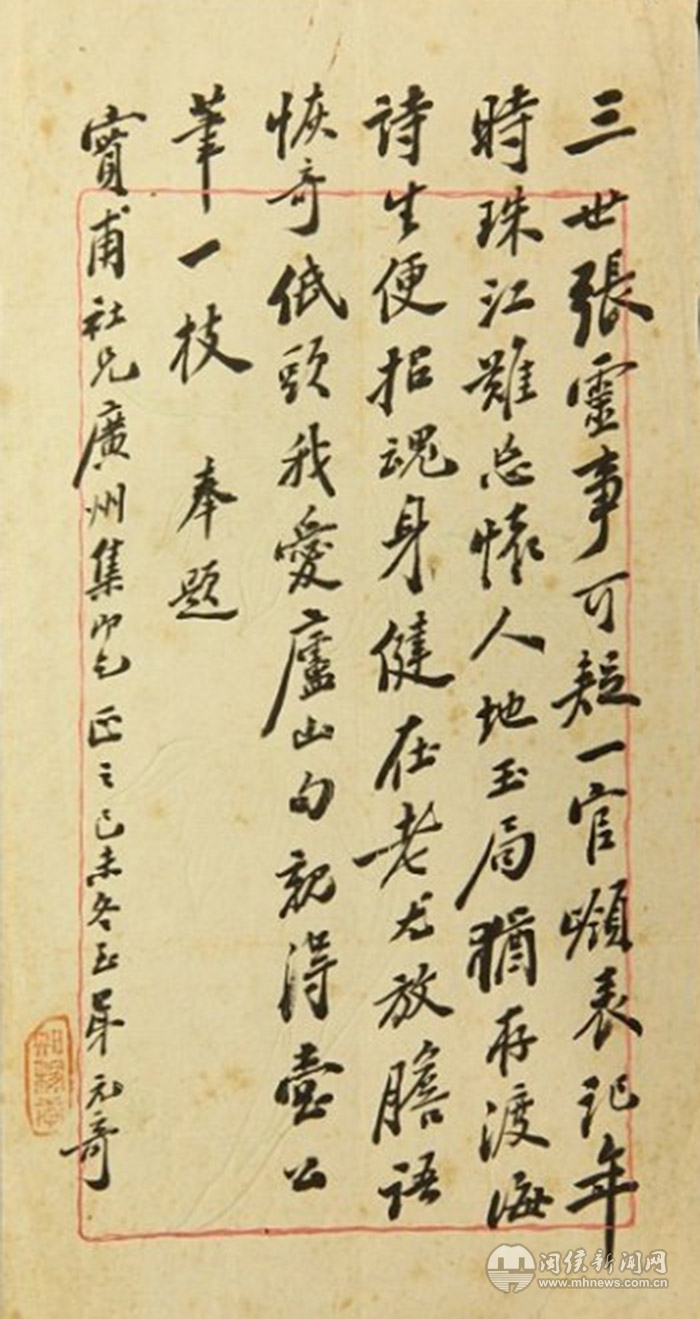 三世張靈事可疑一官嶺表記年
時珠江難忘懷人地玉局猶存渡海
詩生便招魂身健在老尤放膽語
恢奇低頭我愛廬山句親得壺公
筆一枝 奉題
實甫社兄廣州集即乞正之己未冬至弟元奇
闽侯新闻网
www.mhnews.com.cn